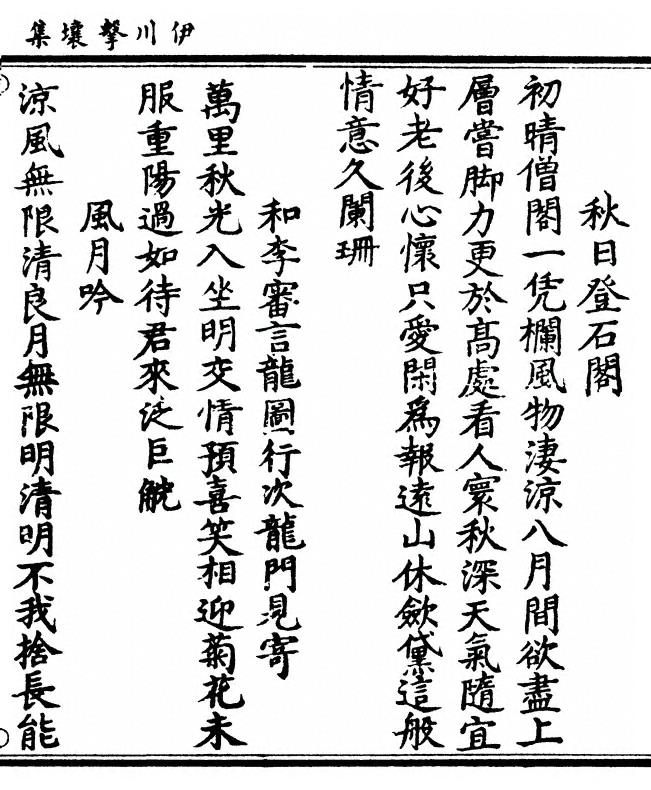 伊川擊壤集
秋日登石閣
初晴僧閣一凭欄風物淒涼八月間欲盡上
層嘗脚力更於髙處看人寰秋深天氣隨宜
好老後心懷只愛閑為報遠山休歛黛這般
情意久闌珊
和李審言龍圖行次龍門見寄
萬里秋光入坐明交情預喜笑相迎菊花未
服重陽過如待君來泛巨觥
風月吟
涼風無限清良月無限明清明不我捨長能